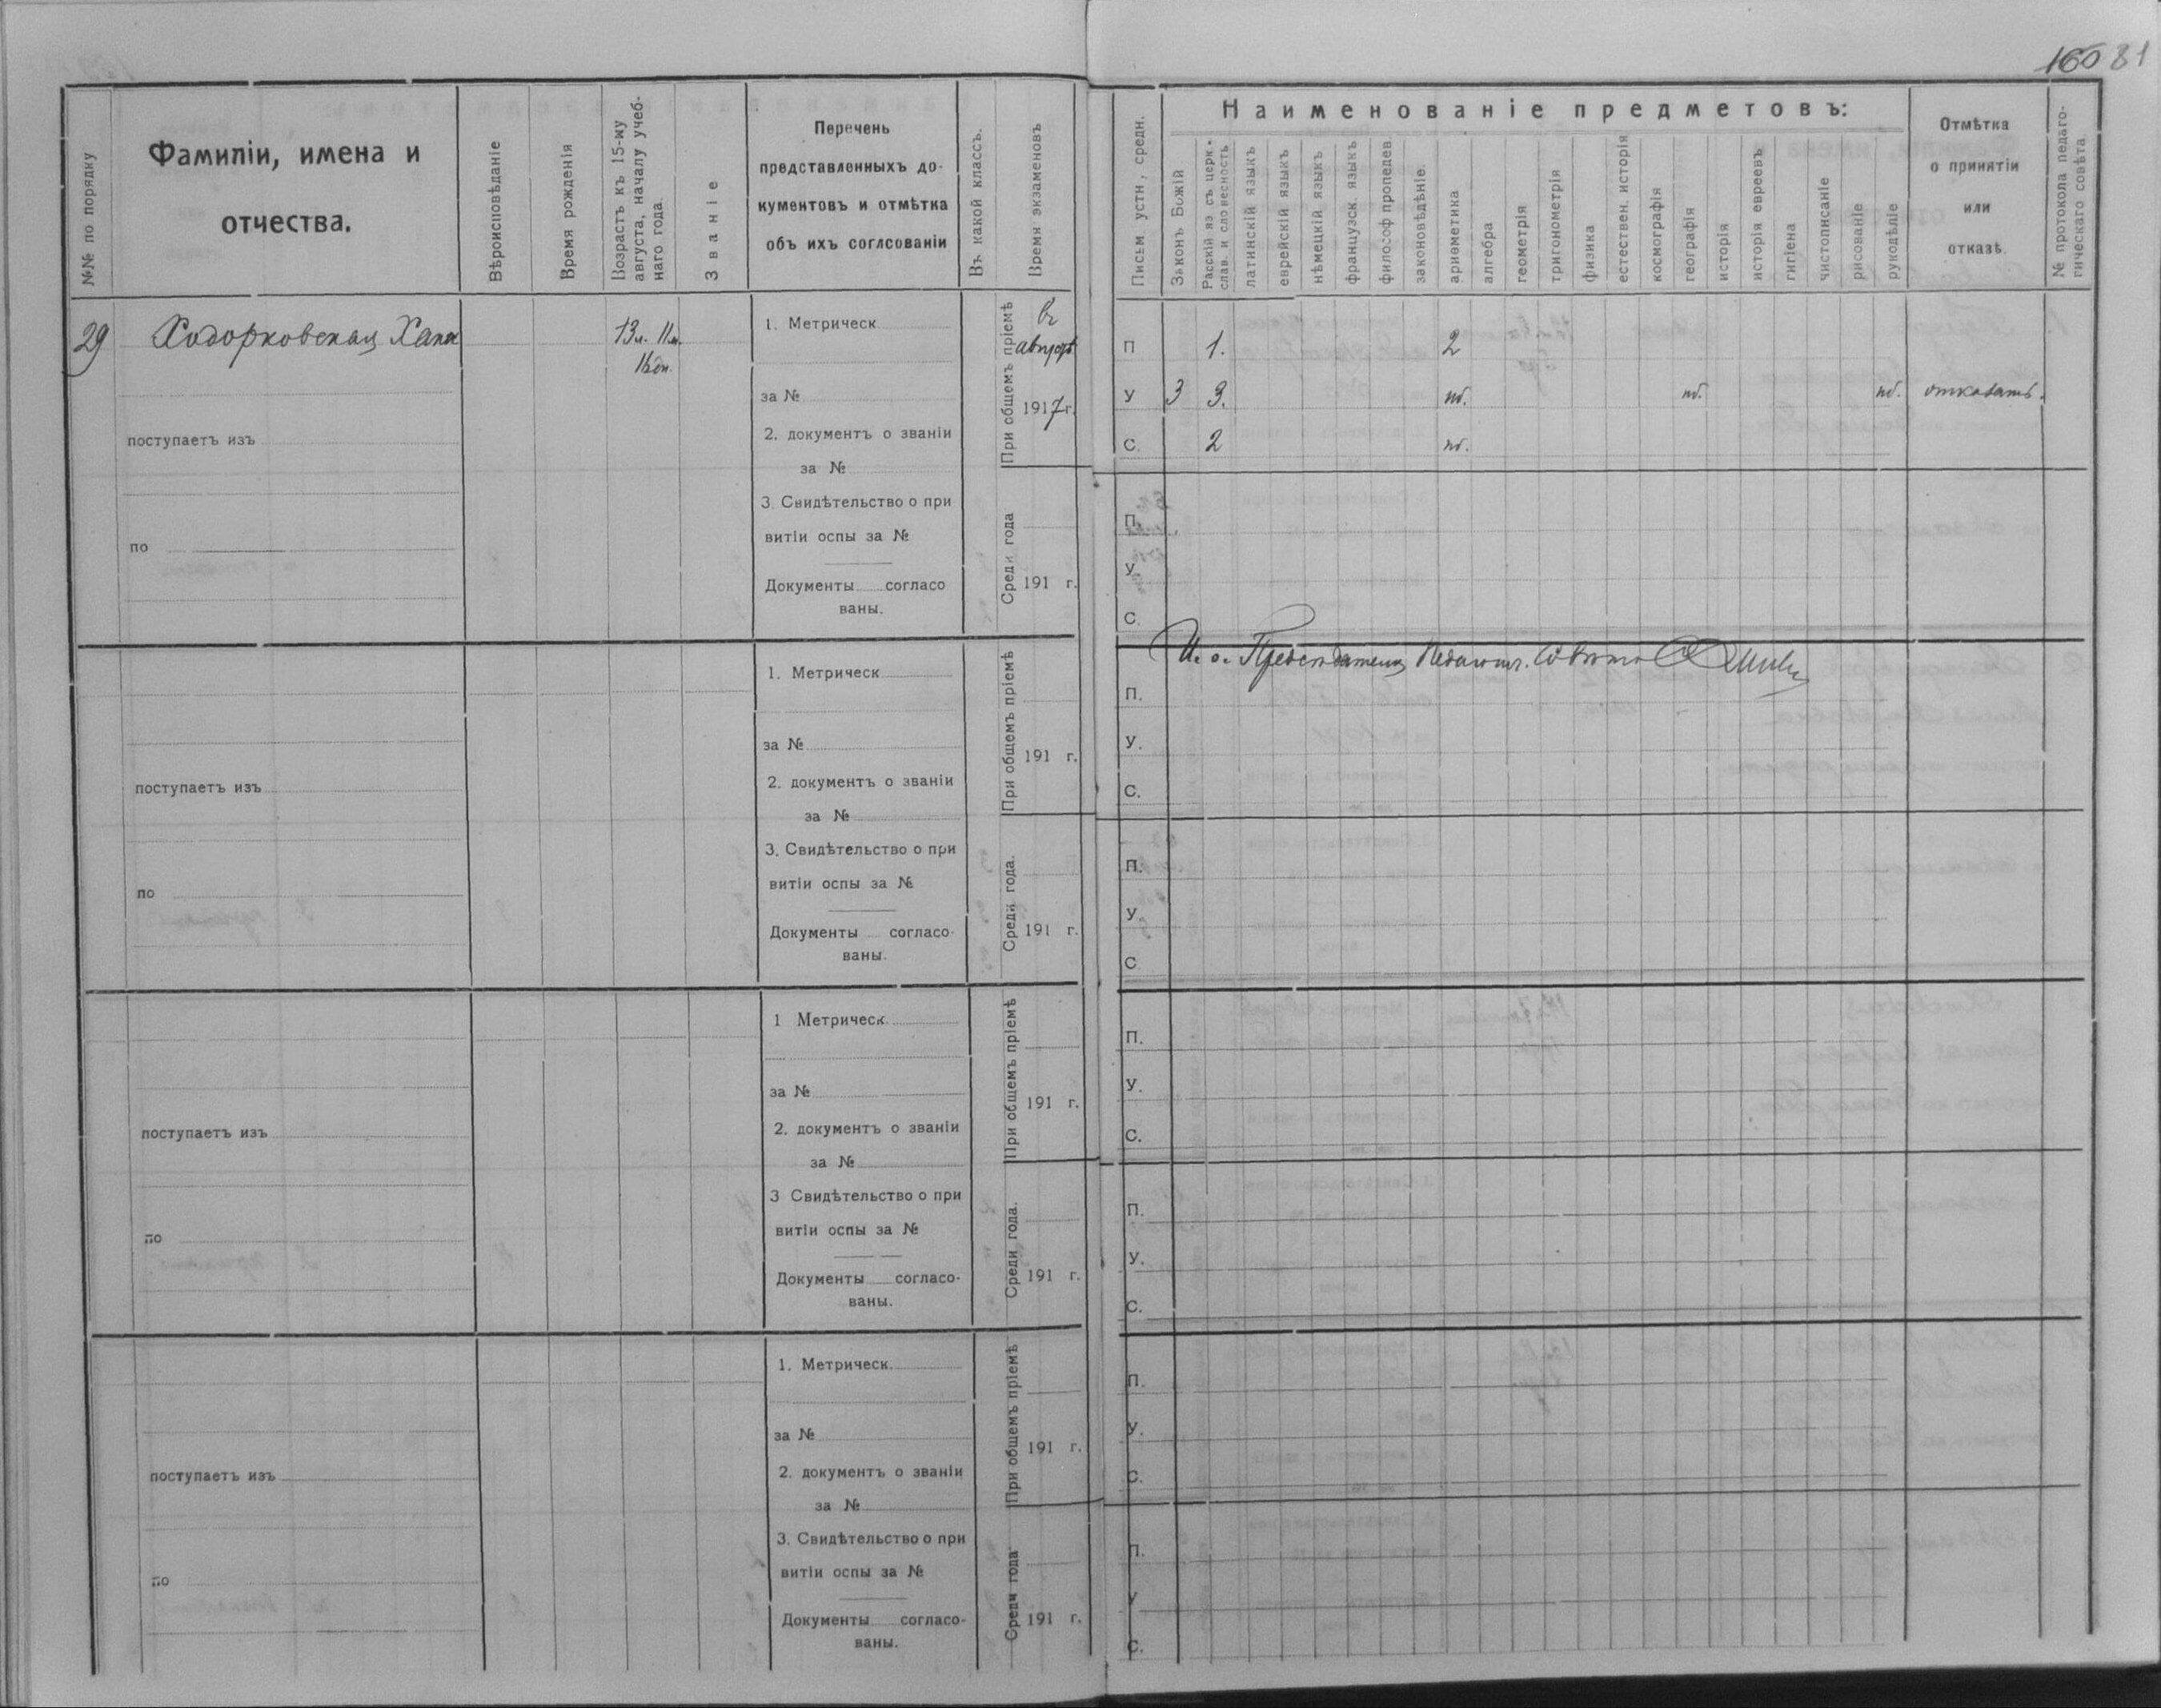 160 81
№№ по порядку
Фамиліи, имена и
отчества.
Вѣроисповѣданіе
Время рожденія
Возрастъ къ 15-му
августа, началу учеб-
наго года.
Званіе
Перечень
представленныхъ до-
кументовъ и отмѣтка
объ ихъ соглсованіи
Въ какой классъ.
Время экзаменовъ
Письм. устн, средн.
Наименованіе предметовъ:
Законъ Божій
Расскій яз съ церк.-
слав. и словесность
латинскій языкъ
еврейскій языкъ
нѣмецкій языкъ
французск. языкъ
философ пропедев
законовѣдѣніе.
ариѳметика
алгебра
геометрія
тригонометрія
физика
естествен. исторія
космографія
географія
исторія
исторія евреевъ
гигіена
чистописаніе
рисованіе
рукодѣліе
Отмѣтка
о принятіи
или
отказѣ.
№ протокола педаго-
гическаго совѣта
29 Ходорковская Хана
13 л. 11 м.
1. Метрическ
за №
2. документъ о званіи
за №
3. Свидѣтельство о при
витіи оспы за №
Документы согласо
ваны.
поступаетъ изъ
по
При общемъ пріемѣ
въ
августѣ
1917 г.
Среди года
191 г.
П 1. 2
У 3 3. нб. нб. нб. отказать.
С. 2 нб.
П.
У.
С.
И. о. Предсѣдателя Педагогич. Совѣта
поступаетъ изъ
по
1. Метрическ
за №
2. документъ о званіи
за №
3. Свидѣтельство о при
витіи оспы за №
Документы согласо-
ваны.
При общемъ пріемѣ
191 г.
Среди года.
191 г.
П.
У.
С.
П.
У.
С
поступаетъ изъ
по
1 Метрическ
за №
2. документъ о званіи
за №
3 Свидѣтельство о при
витіи оспы за №
Документы согласо-
ваны.
При общемъ пріемѣ
191 г.
Среди года.
191 г.
П.
У.
С.
П.
У.
С.
поступаетъ изъ
по
1. Метрическ.
за №
2. документъ о званіи
за №
3. Свидѣтельство о при
витіи оспы за №
Документы согласо-
ваны.
При общемъ пріемѣ
191 г.
Среди года
191 г.
П.
У.
С.
П.
У
С.